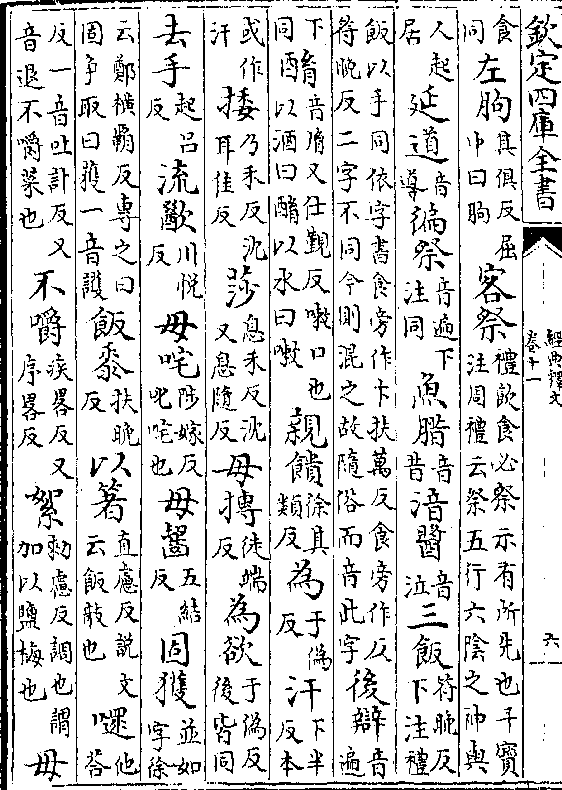 欽定四庫全書 經典釋文 卷十一 六
食同 左朐 其俱反屈中曰朐 客祭 禮飲食必祭示有所先也干寳注周禮云祭五行六陰之神與
人起居 延道 音導 徧祭 音遍下注同 魚腊 音昔 湆醬 音泣 三飯 符晚反下注禮
飯以手同依字書食旁作卞扶萬反食旁作反符晚反二字不同今則混之故隨俗而音此字 後辯 音遍
下同 酳 音胤又仕覲反嗽口也以酒曰酳以水曰嗽 親饋 徐其類反 為 于偽反 汗 下半反本
或作汗 捼 乃禾反沈耳佳反 莎 息禾反沈又息隨反 毋摶 徒端反 為欲 于偽反後皆同
去手 起呂反 流歠 川悅反 毋咤 陟嫁反叱咤也 毋齧 五結反 固獲 並如字徐
云鄭橫霸反專之曰固爭取曰獲一音護 飯黍 扶晚反 以箸 直慮反說文云飯敧也 嚃 他荅
反一音吐計反又音退不嚼菜也 不嚼 疾畧反又序畧反 絮 勑慮反調也謂加以鹽梅也 毋